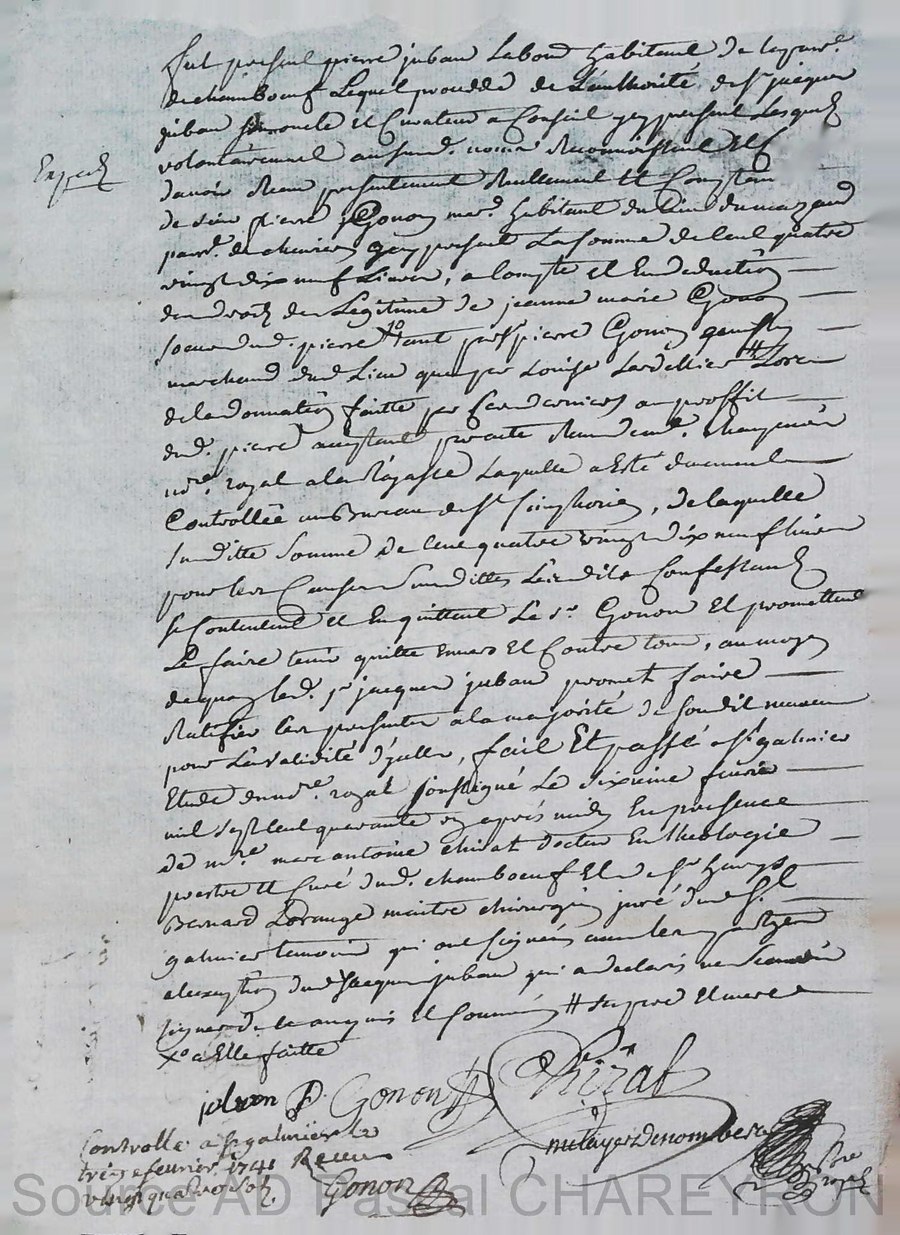 fut present pierre juban Labour habitent de la parr.e
de chamboeuf Lequel procedde de L'authorité de Sr jacques
juban son oncle et Curateur a Conseil yci present Lesquels
volontairement au susd. nom ont Reconnu et
Expedié
d'avoir Receu presentement Reellement et Comptan
de sieur pierre Gonon mar.d habitant du Lieu du mazaud
parr.e de chevrieres yci present La somme de Cent quatre
vingt dix neuf Livres, a Compte et En deduction
des droits de Legitime de jeanne marie Gonon
soeur dud. pierre tant par Sr pierre Gonon
marchand dud. Lieu que par Louise Lardellier # Lors
de la donnation faitte par Ces derniers au proffit
dud. pierre acceptant
nore. royal a la Laquelle a esté duement
Controllée au Bureau de St Simphorien, de laquelle
susditte somme de Cent quatre vingt dix neuf Livres
pour les Causes susdittes Lesdits Confessants
se Contentent et En quittent Le Sr Gonon Et promettent
Le faire tenir quitte Envers Et Contre tous, au moyen
de quoy Led. Sr jacques juban promet faire
Ratifier Les presentes a la majorité de son dit neveu
pour La validité d'ycelles, fait Et passé a St galmier
Etude du nore. royal soussigné Le dixieme fevrier
mil sept Cent quarante un après midy En presence
de mre marc antoine chirat docteur En theologie
prestre et Curé dud. chamboeuf Et de Sr
Bernard Lorange maitre chirurgien juré dud. St
galmier temoins qui ont signés avec les partyes
a l'exception dud. jacques juban qui a declaré ne Scavoir
signer de Ce Enquis et Sommé # ses pere Et mere
a Elle faitte
juban P. Gonon Chirat
Controllé a St galmier Le
treize fevrier 1741 Receu
vingt quatre sols.
Gonon
nore
royal
Source AD Pascal CHAREYRON